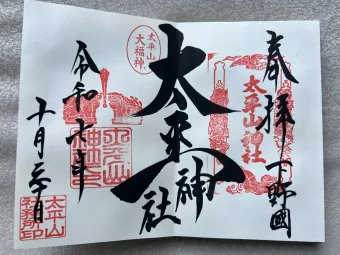 奉拝
下野國
太平山神社
太平山
大福神
太平山神社
令和七年
十月三十日
太平山
社務所印